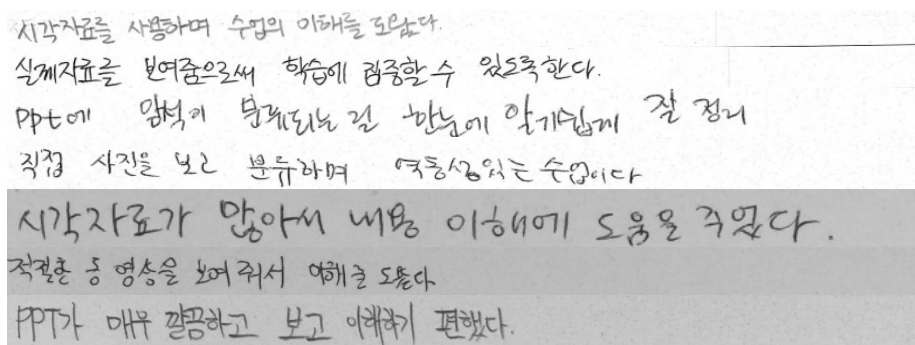 시각자료를 사용하며 수업의 이해를 도왔다.
실제자료를 보여줌으로써 학습에 집중할 수 있도록한다.
ppt에 암석이 분류되는 걸 한눈에 알기쉽게 잘 정리
직접 사진을 보고 분류하며 역동성있는 수업이다
시각자료가 많아서 내용 이해에 도움을 주었다.
적절한 동영상을 보여줘서 이해를 도왔다.
PPT가 매우 깔끔하고 보고 이해하기 편했다.